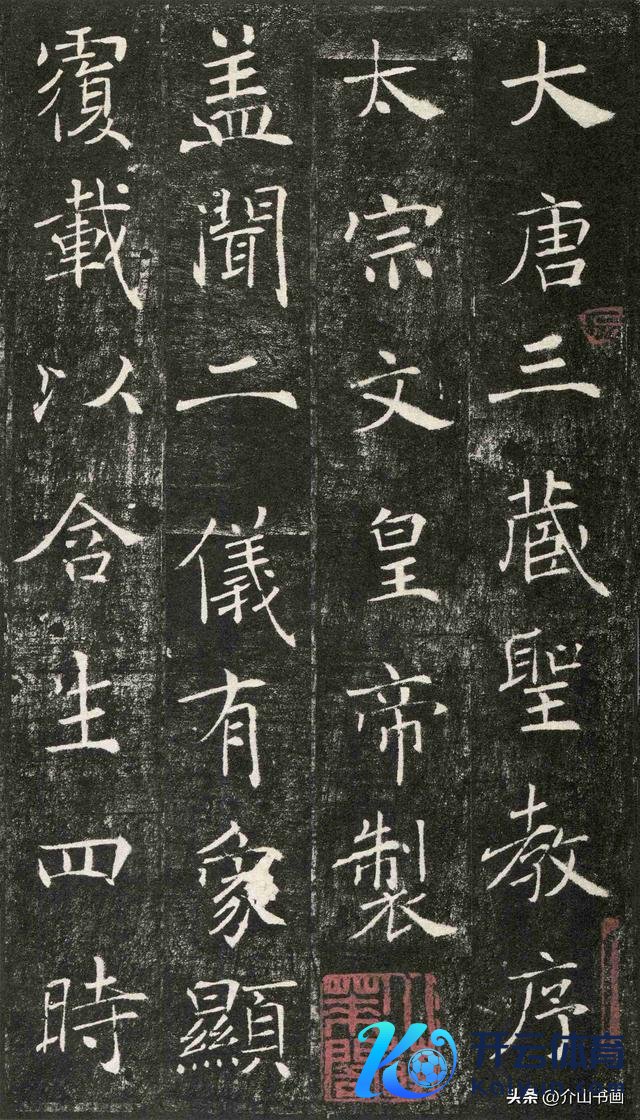 大唐三藏聖教序
太宗文皇帝製
盖聞二儀有象顯
覆載以含生四時
开云体育
头条@介山书画